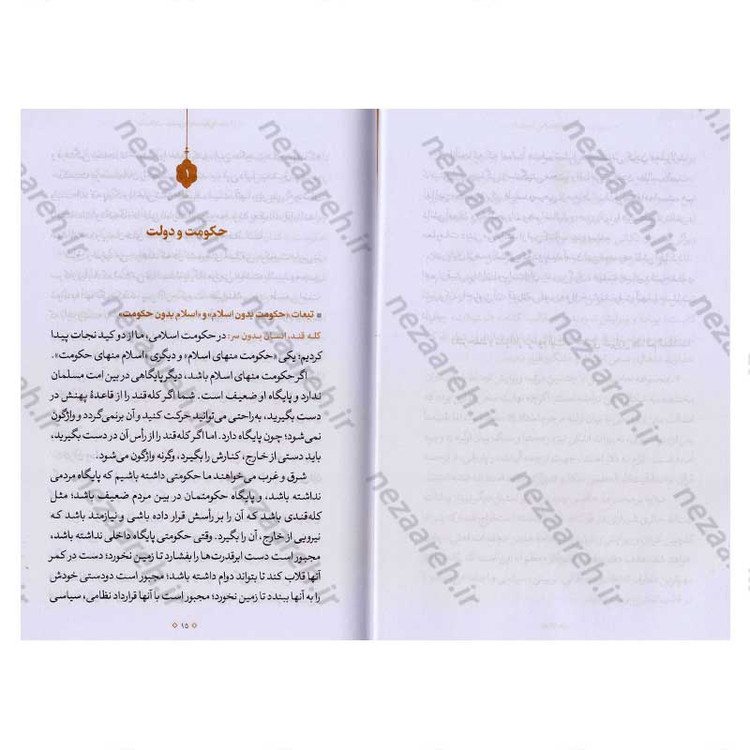 ۱
حکومت و دولت
تبعات «حکومت بدون اسلام» و «اسلام بدون حکومت»
کله قند، انسان بدون سر: در حکومت اسلامی، ما از دو کید نجات پیدا
کردیم: یکی «حکومت منهای اسلام» و دیگری «اسلام منهای حکومت».
اگر حکومت منهای اسلام باشد، دیگر پایگاهی در بین امت مسلمان
ندارد و پایگاه او ضعیف است. شما اگر کله‌قند را از قاعدهٔ پهنش در
دست بگیرید، به‌راحتی می‌توانید حرکت کنید و آن برنمی‌گردد و واژگون
نمی‌شود؛ چون پایگاه دارد. اما اگر کله‌قند را از رأس آن در دست بگیرید،
باید دستی از خارج، کنارش را بگیرد، وگرنه واژگون می‌شود.
شرق و غرب می‌خواهند ما حکومتی داشته باشیم که پایگاه مردمی
نداشته باشد، و پایگاه حکومتمان در بین مردم ضعیف باشد؛ مثل
کله‌قندی باشد که آن را بر رأسش قرار داده باشی و نیازمند باشد که
نیرویی از خارج، آن را بگیرد. وقتی حکومتی پایگاه داخلی نداشته باشد،
مجبور است دست ابرقدرت‌ها را بفشارد تا زمین نخورد؛ دست در کمر
آنها قلاب کند تا بتواند دوام داشته باشد؛ مجبور است دودستی خودش
را به آنها ببندد تا زمین نخورد؛ مجبور است با آنها قرارداد نظامی، سیاسی
۱۵
nezaareh.ir
nezaareh.ir
nezaareh.ir
nezaareh.ir
nezaareh.ir
nezaareh.ir